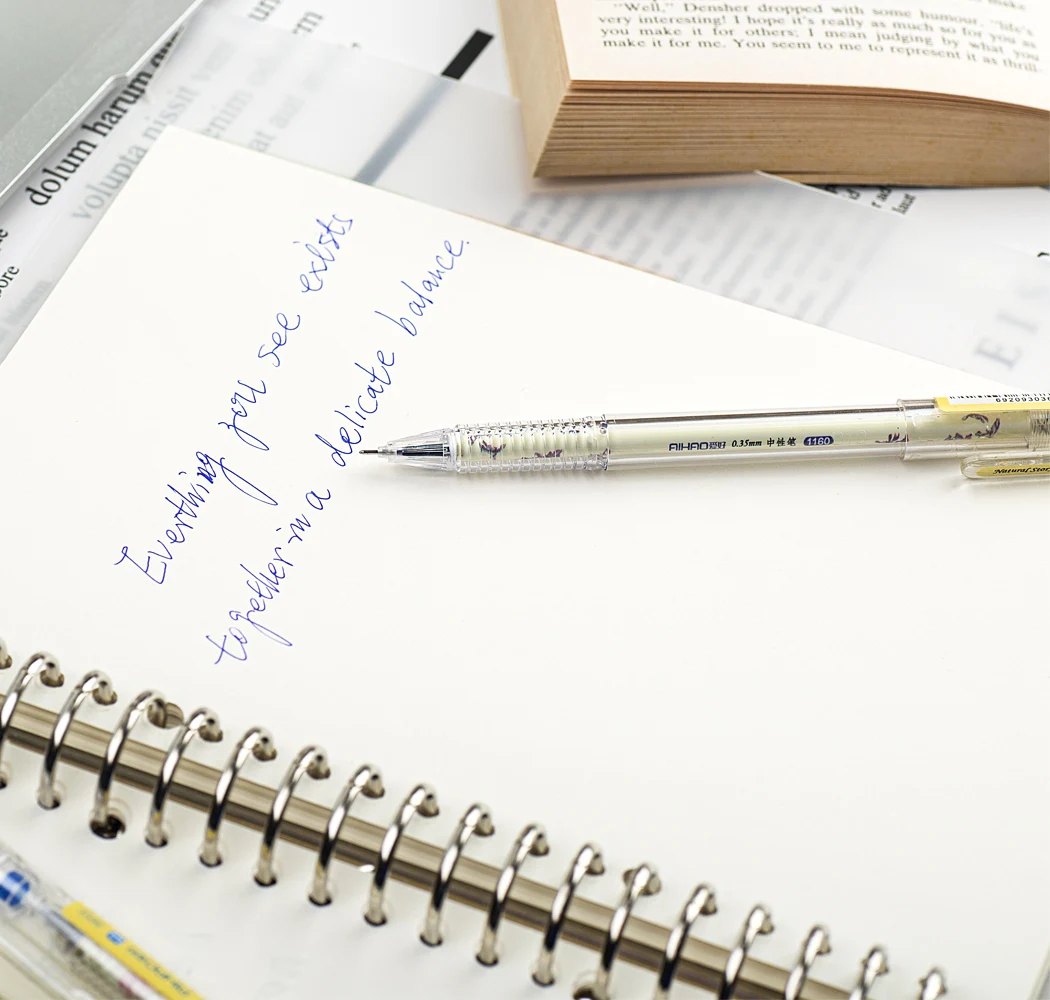 make
"Well," Densher dropped with some humour, "life's
very interesting! I hope it's really as much so for you as
you make it for others; I mean judging by what you
make it for me. You seem to me to represent it as thrill-
dolum harum
volupta nissit
enim
at aut
Everthing you see exists
together in a delicate balance.
AIHAO爱好 0.35mm 中性笔 1160
6920930
Natural Stor